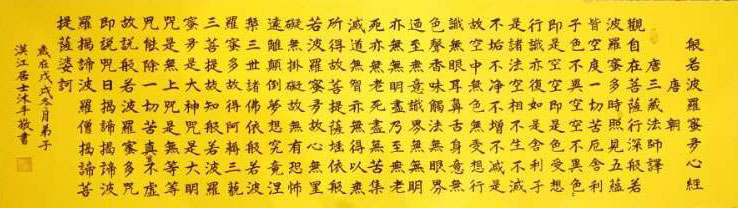 般若波羅蜜多心經
唐朝
唐三藏法師譯
觀自在菩薩行深般若
波羅蜜多時照見五蘊
皆空度一切苦厄舍利
子色不異空空不異色
即是空空即是受想
行識亦復如是舍利子
是諸法空相不生不滅
不垢不淨不增不減是
故空中無色無受想行
識無眼耳鼻舌身意無
色聲香味觸法無眼界
迺至無意識界無無明
亦無無明盡乃至無老
死亦無老死盡無苦集
滅道無智亦無得以無
所得故菩提薩埵依般
若波羅蜜多故心無罣
礙無掛礙故無有恐怖
遠離顛倒夢想究竟涅
槃三世諸佛依般若波
羅蜜多故得阿耨三藐
三菩提故知般若波羅
蜜多是大神咒是大明
咒是無上咒是無等等
咒能除一切苦真實不虛
故說般若波羅蜜多咒
即說咒曰揭諦揭諦波
羅揭諦波羅僧揭諦菩
提薩婆訶
歲在戊戌冬月弟子
漢江居士沐手敬書